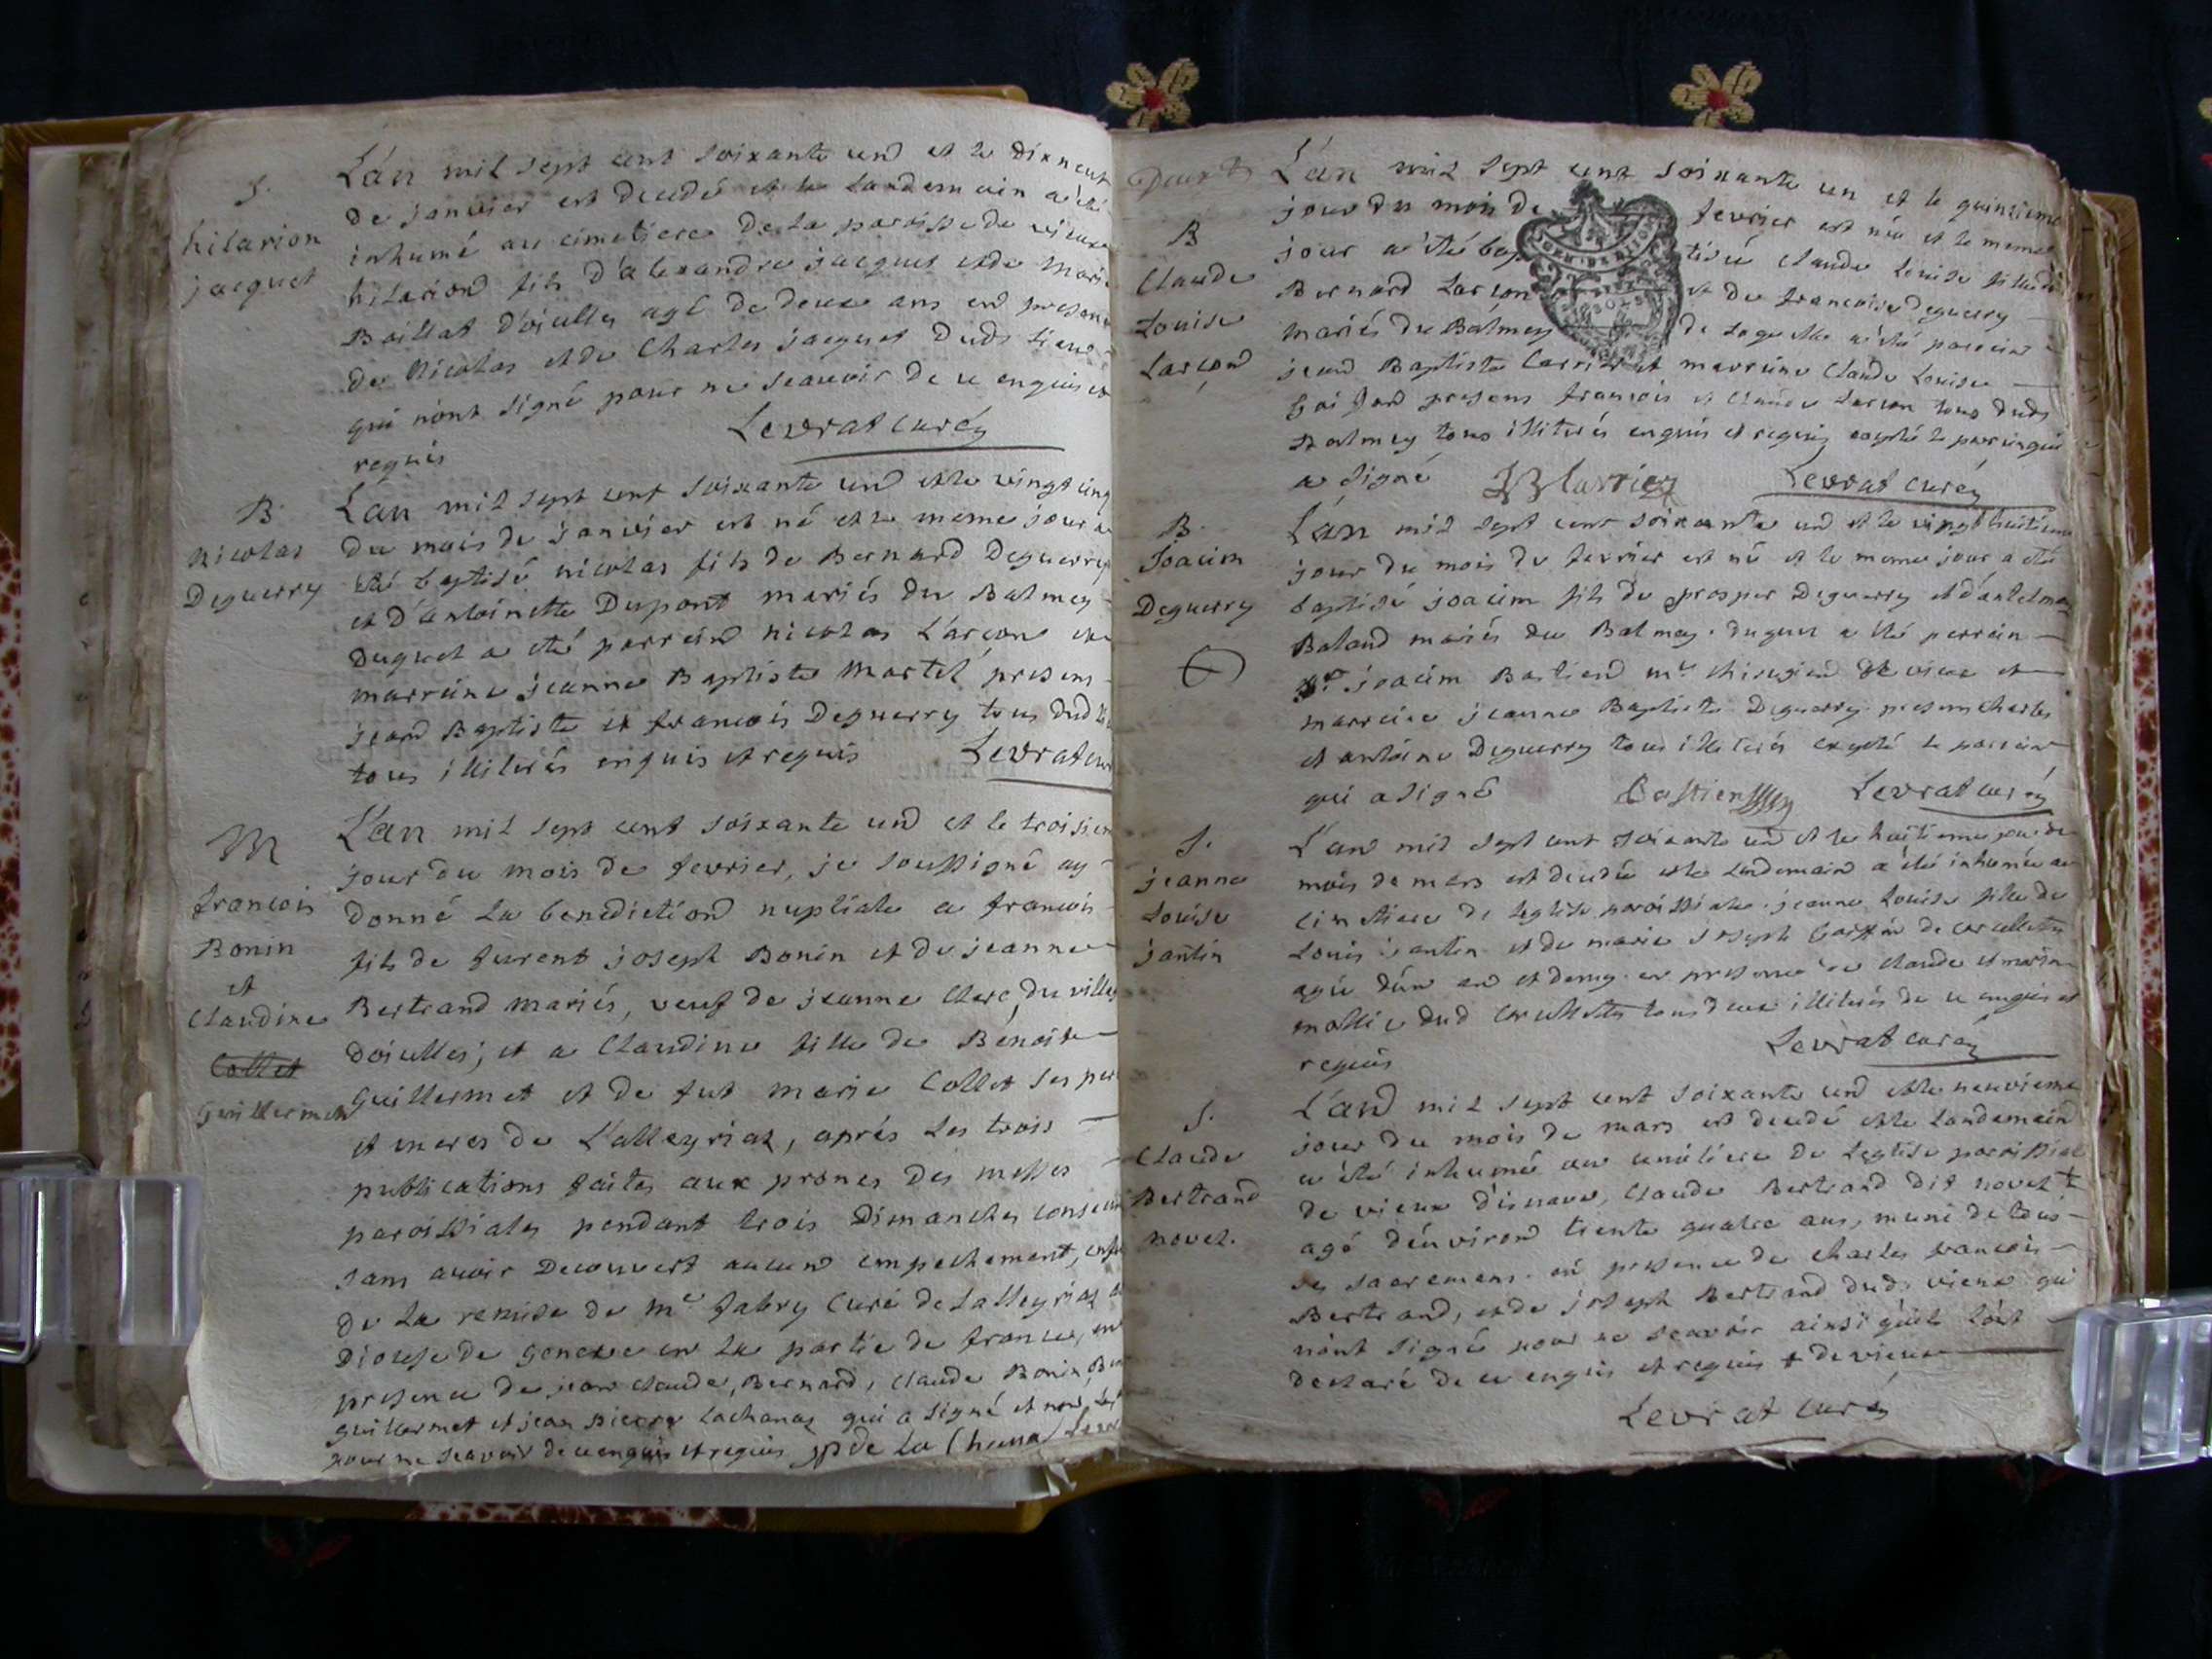 S.
hilarion
jacquet
L'an mil sept cent soixante und et le dixneuf
de janvier est decedé et le landemain a été
inhumé au cimetiere de la paroisse de vieux
hilariond fils d'alexandre jacquet et de Marie
Baillat d'oisselles agé de deux ans end presence
de Nicolas et de Charles jacquet dud. lieu
qui n'ont signé pour ne scauoir de ce enquis et
requis
Levrat curé
B
Nicolas
Deguerry
L'an mil sept cent soixante und et le vingt cinq
du mois de janvier est né et le meme jour a
été baptisé nicolas fils de Bernard Deguerry
et d'antoinette Dupont mariés du Balmey
duquel a été parreind nicolas Larçon et
marreine jeanne Baptiste Martel presens
jeand Baptiste et francois Deguerry tous dud
tous illiterés enquis et requis Levrat cur
M
francois
Bonin
et
Claudine
Collet
Guillermet
L'an mil sept cent soixante und et le troisiem
jour du mois de fevrier, je soussigné ay
donné la benedictiond nuptiale a francois
fils de furent joseph Bonin et de jeanne
Bertrand mariés, veuf de jeanne Clerc, du villa
doisselles; et a Claudine fille de Benoit
Guillermet et de fut marie Collet ses per
et meres de Lalleyriaz, aprés les trois
publications faites aux prones des messes
paroissiales pendant trois Dimanches consecu
sans auoir Decouvert aucund empechement,
de la remise de Me fabry Curé de Lalleyriaz
Diocese de geneve en la partie de france, en
presence de jean claude, Bernard, Claude Bonin,
guillermet et jean pierre Lachanaz qui a signé et non
pour ne scavoir de ce enquis et requis jp de la Chana
B
Claude
Louise
Larçond
L'an mil sept cent soixante un et le quinzieme
jour du mois de fevrier est née et le meme
jour a été baptisée claude Louise fille de
Bernard Larçon et de francoise Deguerry
mariés du Balmey de laquelle a été parrein
jeand Baptiste Carrier et marreine Claude Louise
presens francois et Claude Larçon tous dud
Balmey tous illiterés enquis et requis excepté le parrin qui
a signé JB Carrier Levrat curé
B.
Joacim
Deguerry
L'an mil sept cent soixante und et le vingthuitieme
jour du mois de fevrier est né et le meme jour a été
baptisé joacim fils de prosper Deguerry et d'antelmaz
Baland mariés du Balmey. duquel a été parrein
Sr joacim Bastiend me chirugiend de vieux et
marreine jeanne Baptiste Deguerry presens charles
et antoine Deguerry tous illiterés excepté le parrein
qui a signé Bastien Levrat curé
S.
jeanne
Louise
jantin
L'and mil sept cent soixante und et le huitieme jour du
mois de mars est decedée et le landemain a été inhumée au
cimetiere de leglise paroissiale jeanne Louise fille de
Louis jantin et de marie joseph de
agée d'un an et demy en presence de claude et
dud tous deux illiterés de ce enquis et
requis
Levrat curé
S.
Claude
Bertrand
novel.
L'and mil sept cent soixante und et le neuvieme
jour du mois de mars est decedé et le landemain
a été inhumé au cimetiere de leglise paroissial
de vieux d'isnave, Claude Bertrand dit novel +
agé d'environd trente quatre ans, muni de tous
ses sacremens. en presence de charles francois
Bertrand, et de joseph Bertrand dud. vieux qui
n'ont signé pour ne sçavoir ainsi qu'ils l'ont
declaré de ce enquis et requis + de vieux
Levrat curé